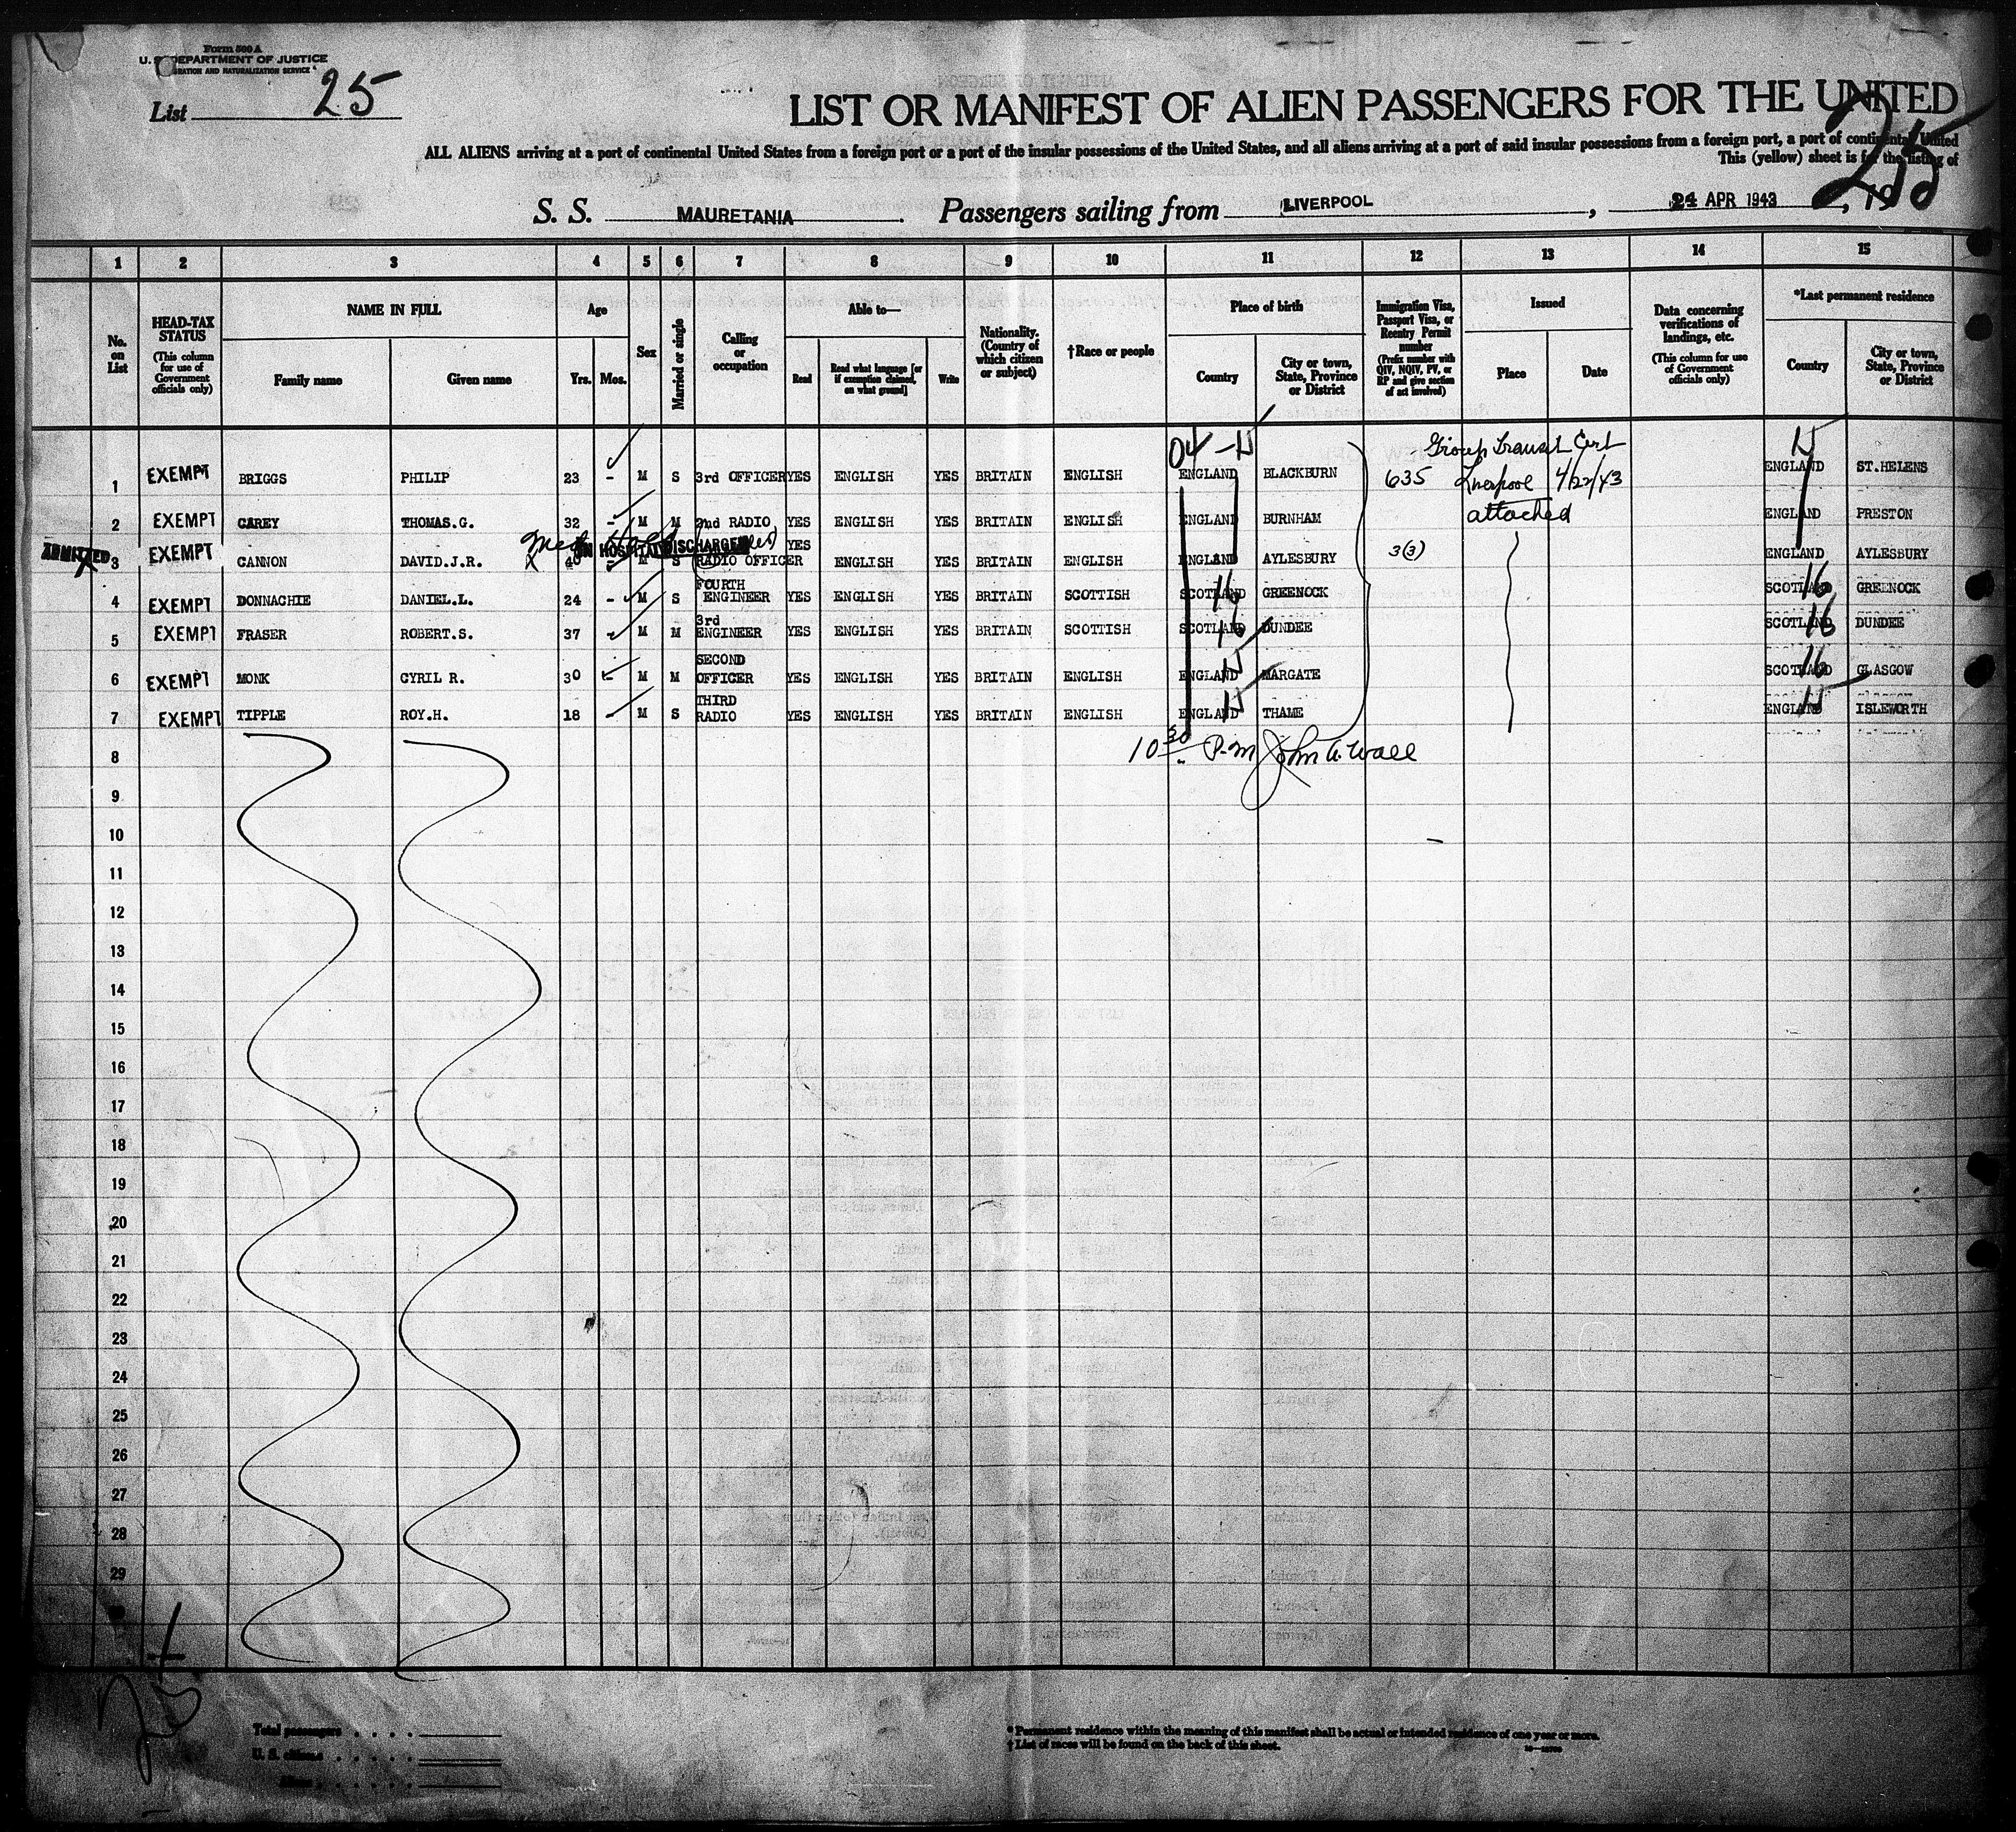 Form 500 A
U. S. DEPARTMENT OF JUSTICE
IMMIGRATION AND NATURALIZATION SERVICE
List 25
LIST OR MANIFEST OF ALIEN PASSENGERS FOR THE UNITED
25
ALL ALIENS arriving at a port of continental United States from a foreign port or a port of the insular possessions of the United States, and all aliens arriving at a port of said insular possessions from a foreign port, a port of continental United
This (yellow) sheet is for the listing of
S. S. MAURETANIA. Passengers sailing from LIVERPOOL, 24 APR 1943, 19
1 2 3 4 5 6 7 8 9 10 11 12 13 14 15
No. on List
HEAD-TAX STATUS (This column for use of Government officials only)
NAME IN FULL Family name Given name
Age Yrs. Mos.
Sex
Married or single
Calling or occupation
Able to— Read Read what language [or if exemption claimed, on what ground] Write
Nationality. (Country of which citizen or subject)
†Race or people
Place of birth Country City or town, State, Province or District
Immigration Visa, Passport Visa, or Reentry Permit number (Prefix number with QIV, NQIV, PV, or RP and give section of act involved)
Issued Place Date
Data concerning verifications of landings, etc. (This column for use of Government officials only)
*Last permanent residence Country City or town, State, Province or District
04 Group Transit Cert
1 EXEMPT BRIGGS PHILIP 23 - M S 3rd OFFICER YES ENGLISH YES BRITAIN ENGLISH ENGLAND BLACKBURN 635 Liverpool 4/22/43 ENGLAND ST.HELENS
2 EXEMPT CAREY THOMAS.G. 32 - M M 2nd RADIO YES ENGLISH YES BRITAIN ENGLISH ENGLAND BURNHAM attached ENGLAND PRESTON
Med Hold IN HOSPITAL DISCHARGED
ADMITTED 3 EXEMPT CANNON DAVID.J.R. 40 - M S RADIO OFFICER YES ENGLISH YES BRITAIN ENGLISH ENGLAND AYLESBURY 3(3) ENGLAND AYLESBURY
4 EXEMPT DONNACHIE DANIEL.L. 24 - M S FOURTH ENGINEER YES ENGLISH YES BRITAIN SCOTTISH SCOTLAND 16 GREENOCK SCOTLAND 16 GREENOCK
5 EXEMPT FRASER ROBERT.S. 37 - M M 3rd ENGINEER YES ENGLISH YES BRITAIN SCOTTISH SCOTLAND 16 DUNDEE SCOTLAND 16 DUNDEE
6 EXEMPT MONK CYRIL R. 30 - M M SECOND OFFICER YES ENGLISH YES BRITAIN ENGLISH ENGLAND MARGATE SCOTLAND 16 GLASGOW
7 EXEMPT TIPPLE ROY.H. 18 - M S THIRD RADIO YES ENGLISH YES BRITAIN ENGLISH ENGLAND THAME ENGLAND ISLEWORTH
8 10 30 P.M John A. Wall
9
10
11
12
13
14
15
16
17
18
19
20
21
22
23
24
25
26
27
28
29
30
Total passengers
U. S. citizens
Aliens
*Permanent residence within the meaning of this manifest shall be actual or intended residence of one year or more.
†List of races will be found on the back of this sheet.